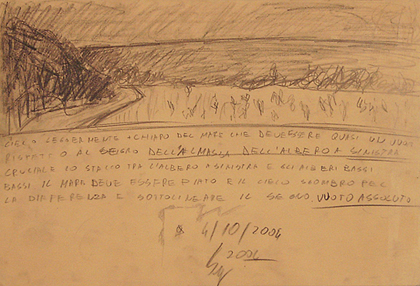 CIELO LEGGERMENTE + CHIARO DEL MARE CHE DEVE ESSERE QUASI UN
RISPETTO AL SEGNO DELL'ALBERO A SINISTRA
CRUCIALE LO STACCO TRA L'ALBERO A SINISTRA E GLI ALBERI BASSI
BASSI IL MARE DEVE ESSERE PIATO E IL CIELO SGOMBRO PER
LA DIFFERENZA E SOTTOLINEARE IL SEGNO. VUOTO ASSOLUTO
4/10/2004
2004